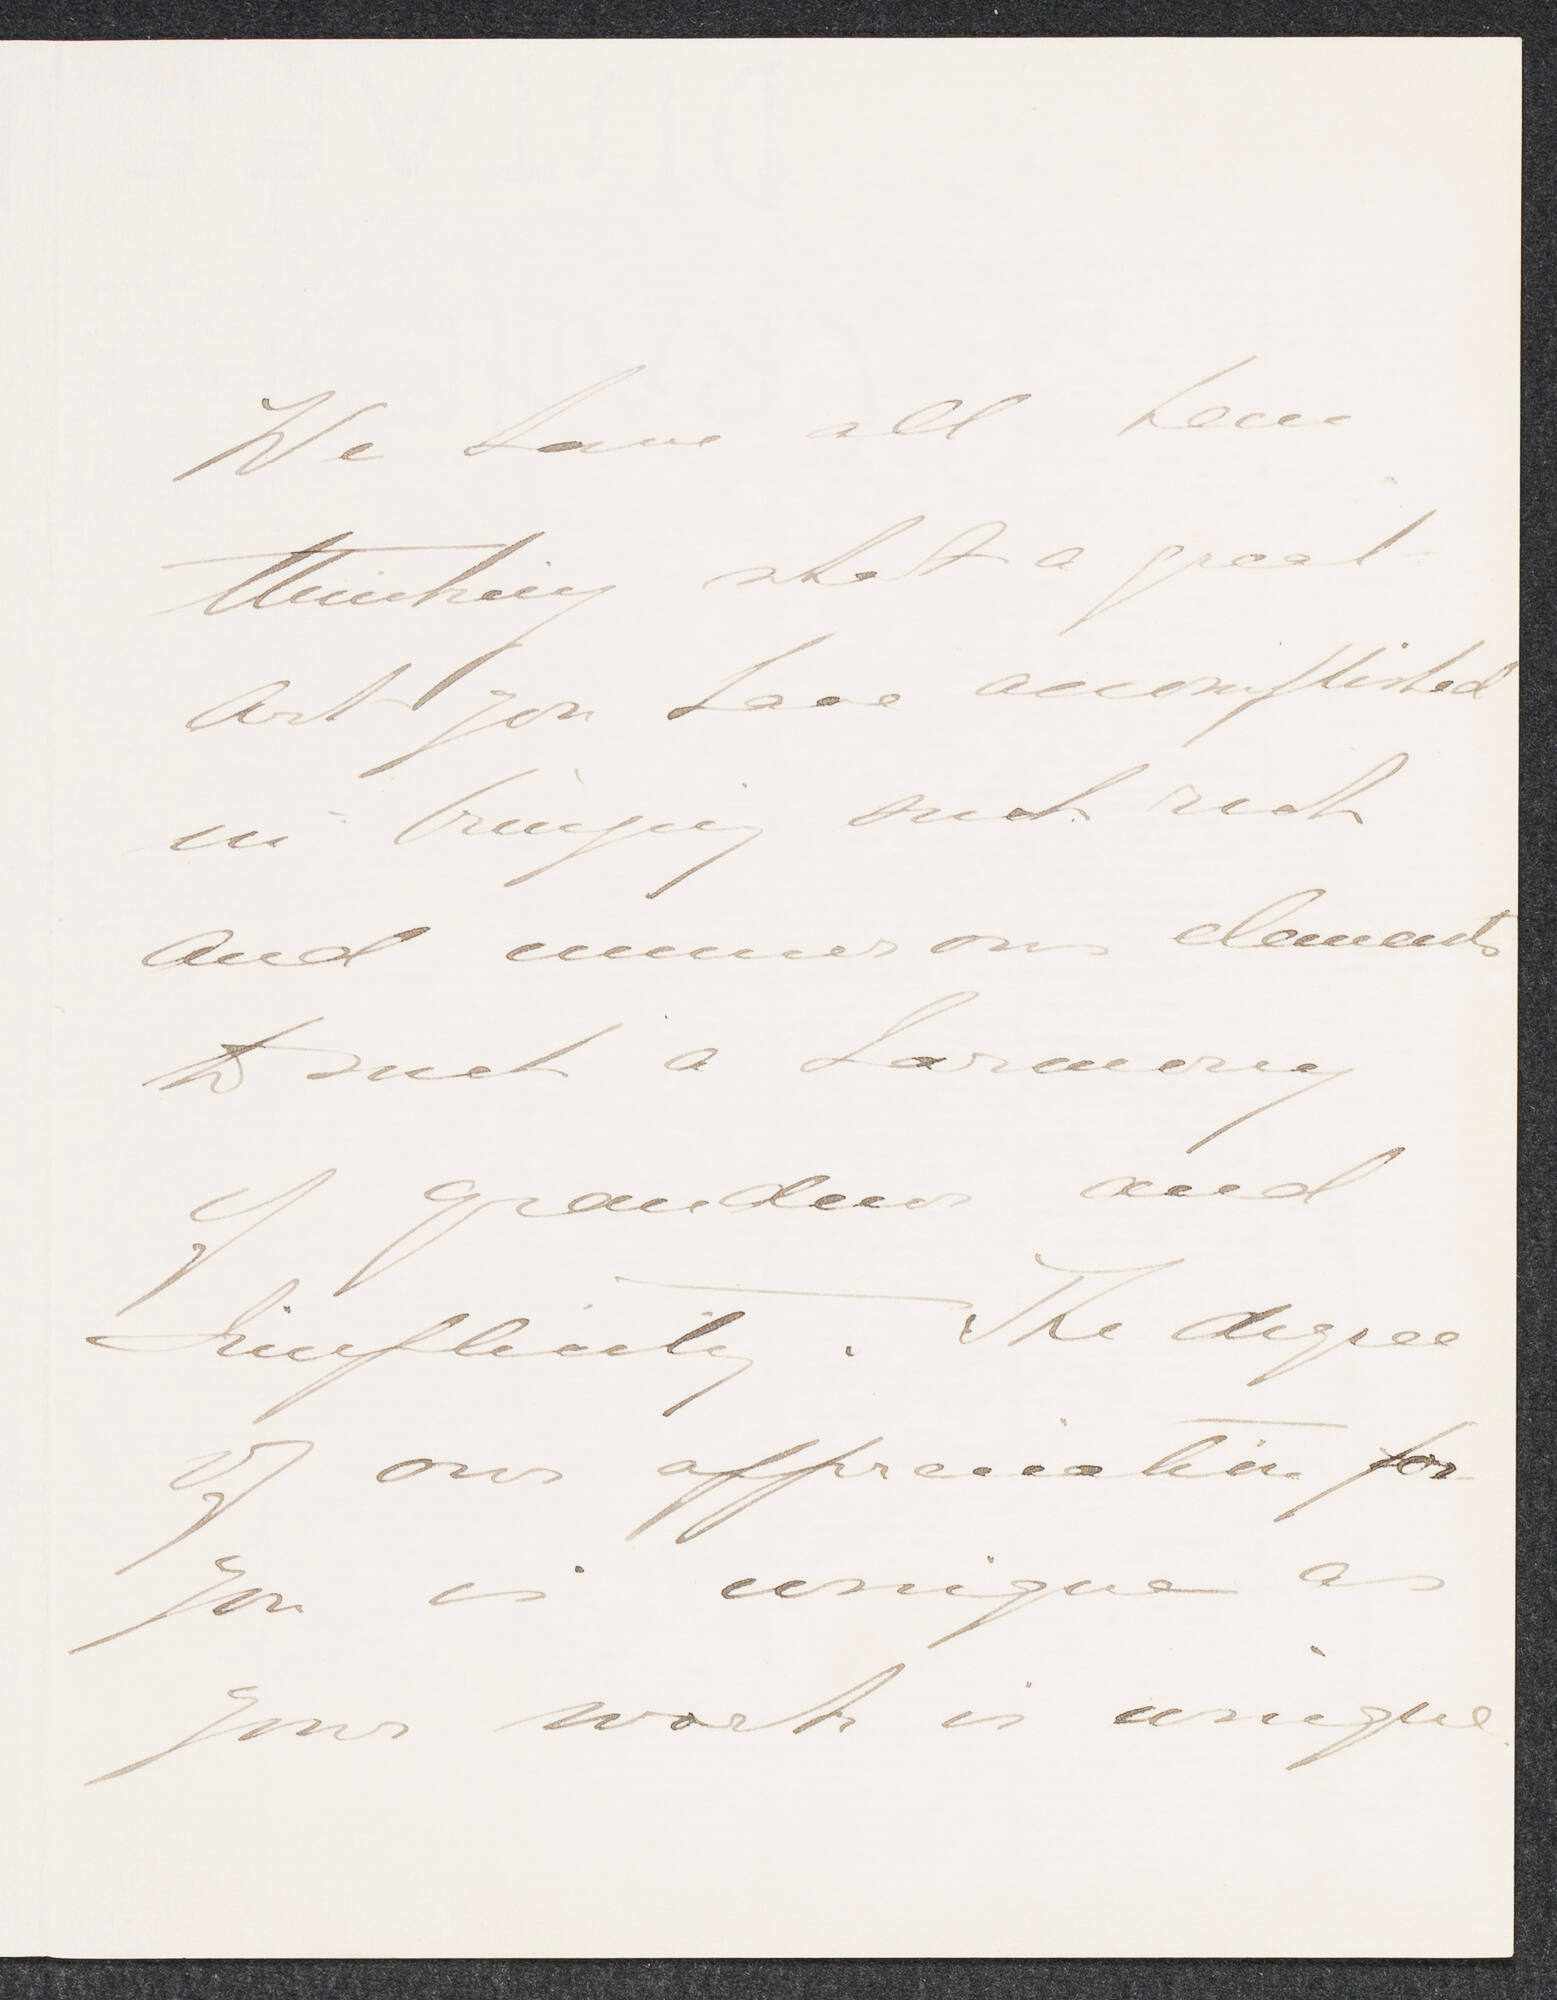 We have all been
thinking what a great
art you have accomplished
in bringing such rich
and numerous elements
to such a harmony
of grandeur and
simplicity. The degree
of our appreciation for
you is unique as
your work is unique.